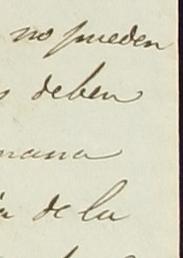 no pueden
s deben
mana
de la